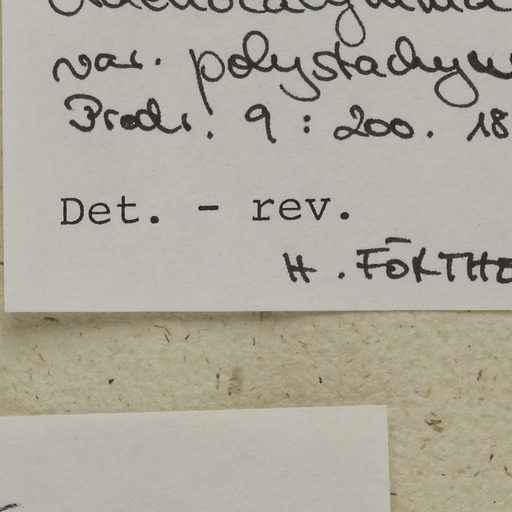 var. polystachyu
Prodr. 9 : 200. 18
Det. - rev.
H. FÖRTHE